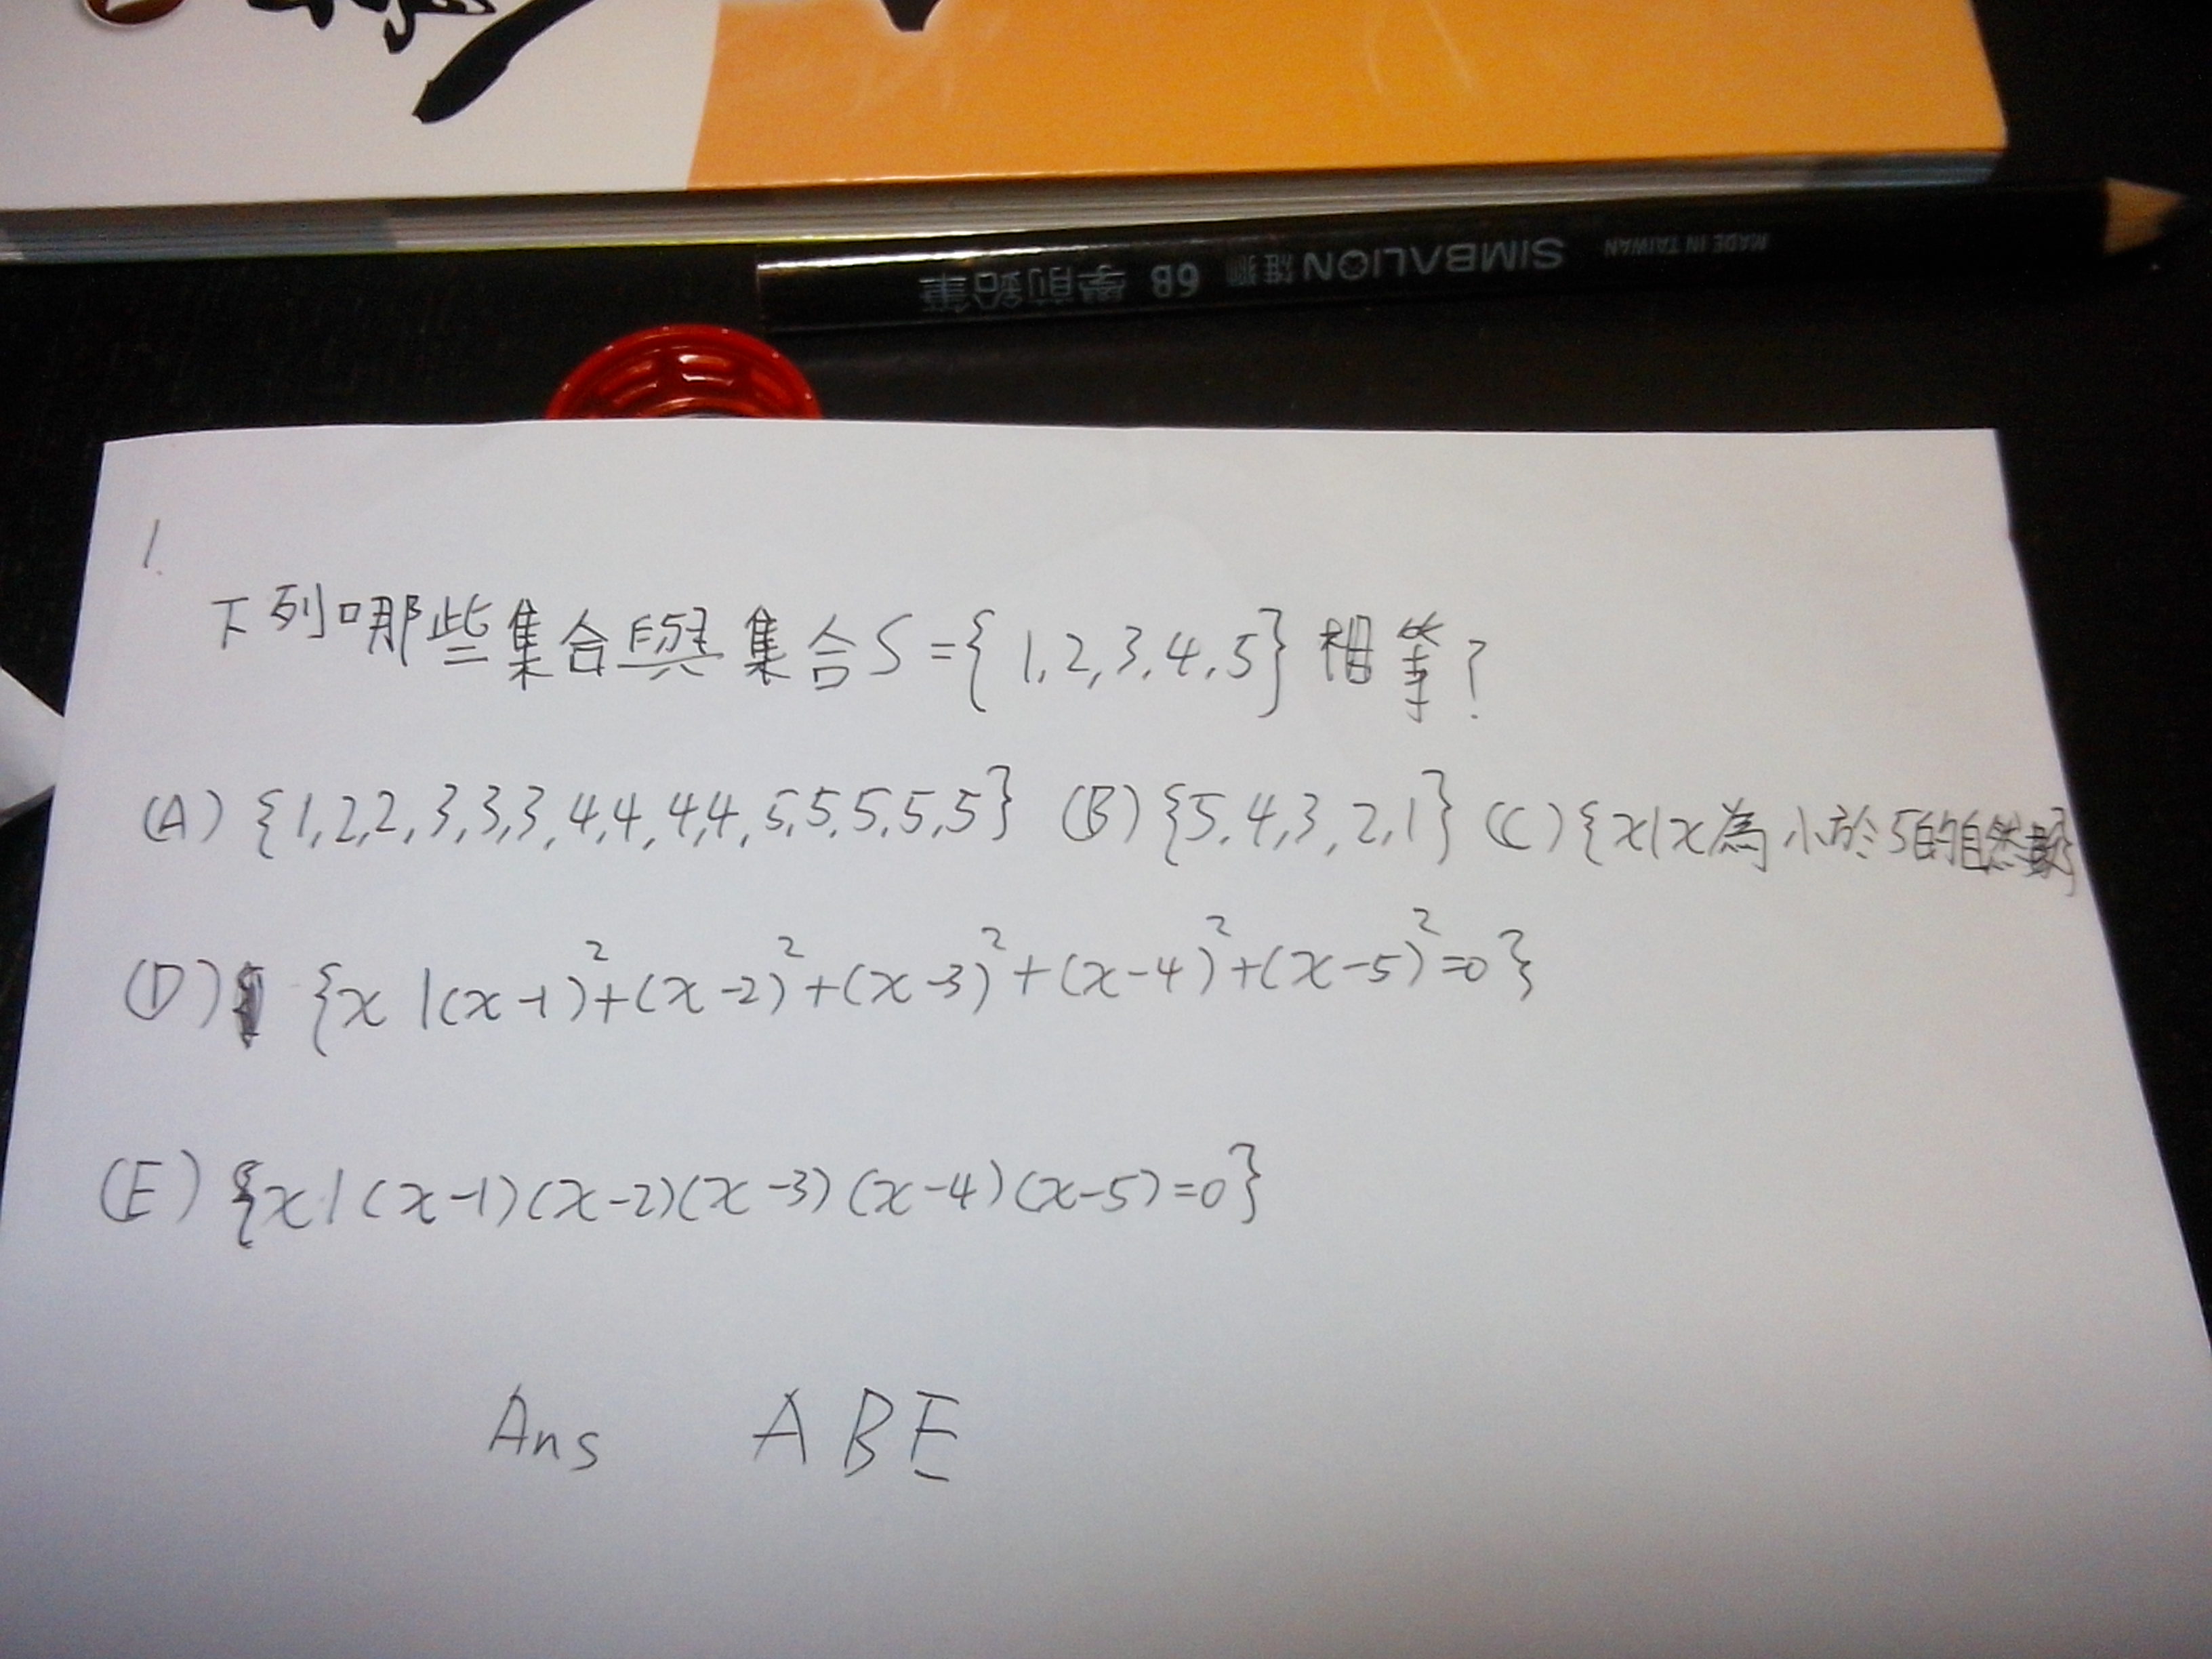 MADE IN TAIWAN SIMBALION 雄獅 6B 學前鉛筆
1.
下列哪些集合與集合S={1,2,3,4,5}相等?
(A){1,2,2,3,3,3,4,4,4,4,5,5,5,5,5} (B){5,4,3,2,1} (C){x|x為小於5的自然數}
(D) {x|(x-1)²+(x-2)²+(x-3)²+(x-4)²+(x-5)²=0}
(E){x|(x-1)(x-2)(x-3)(x-4)(x-5)=0}
Ans ABE